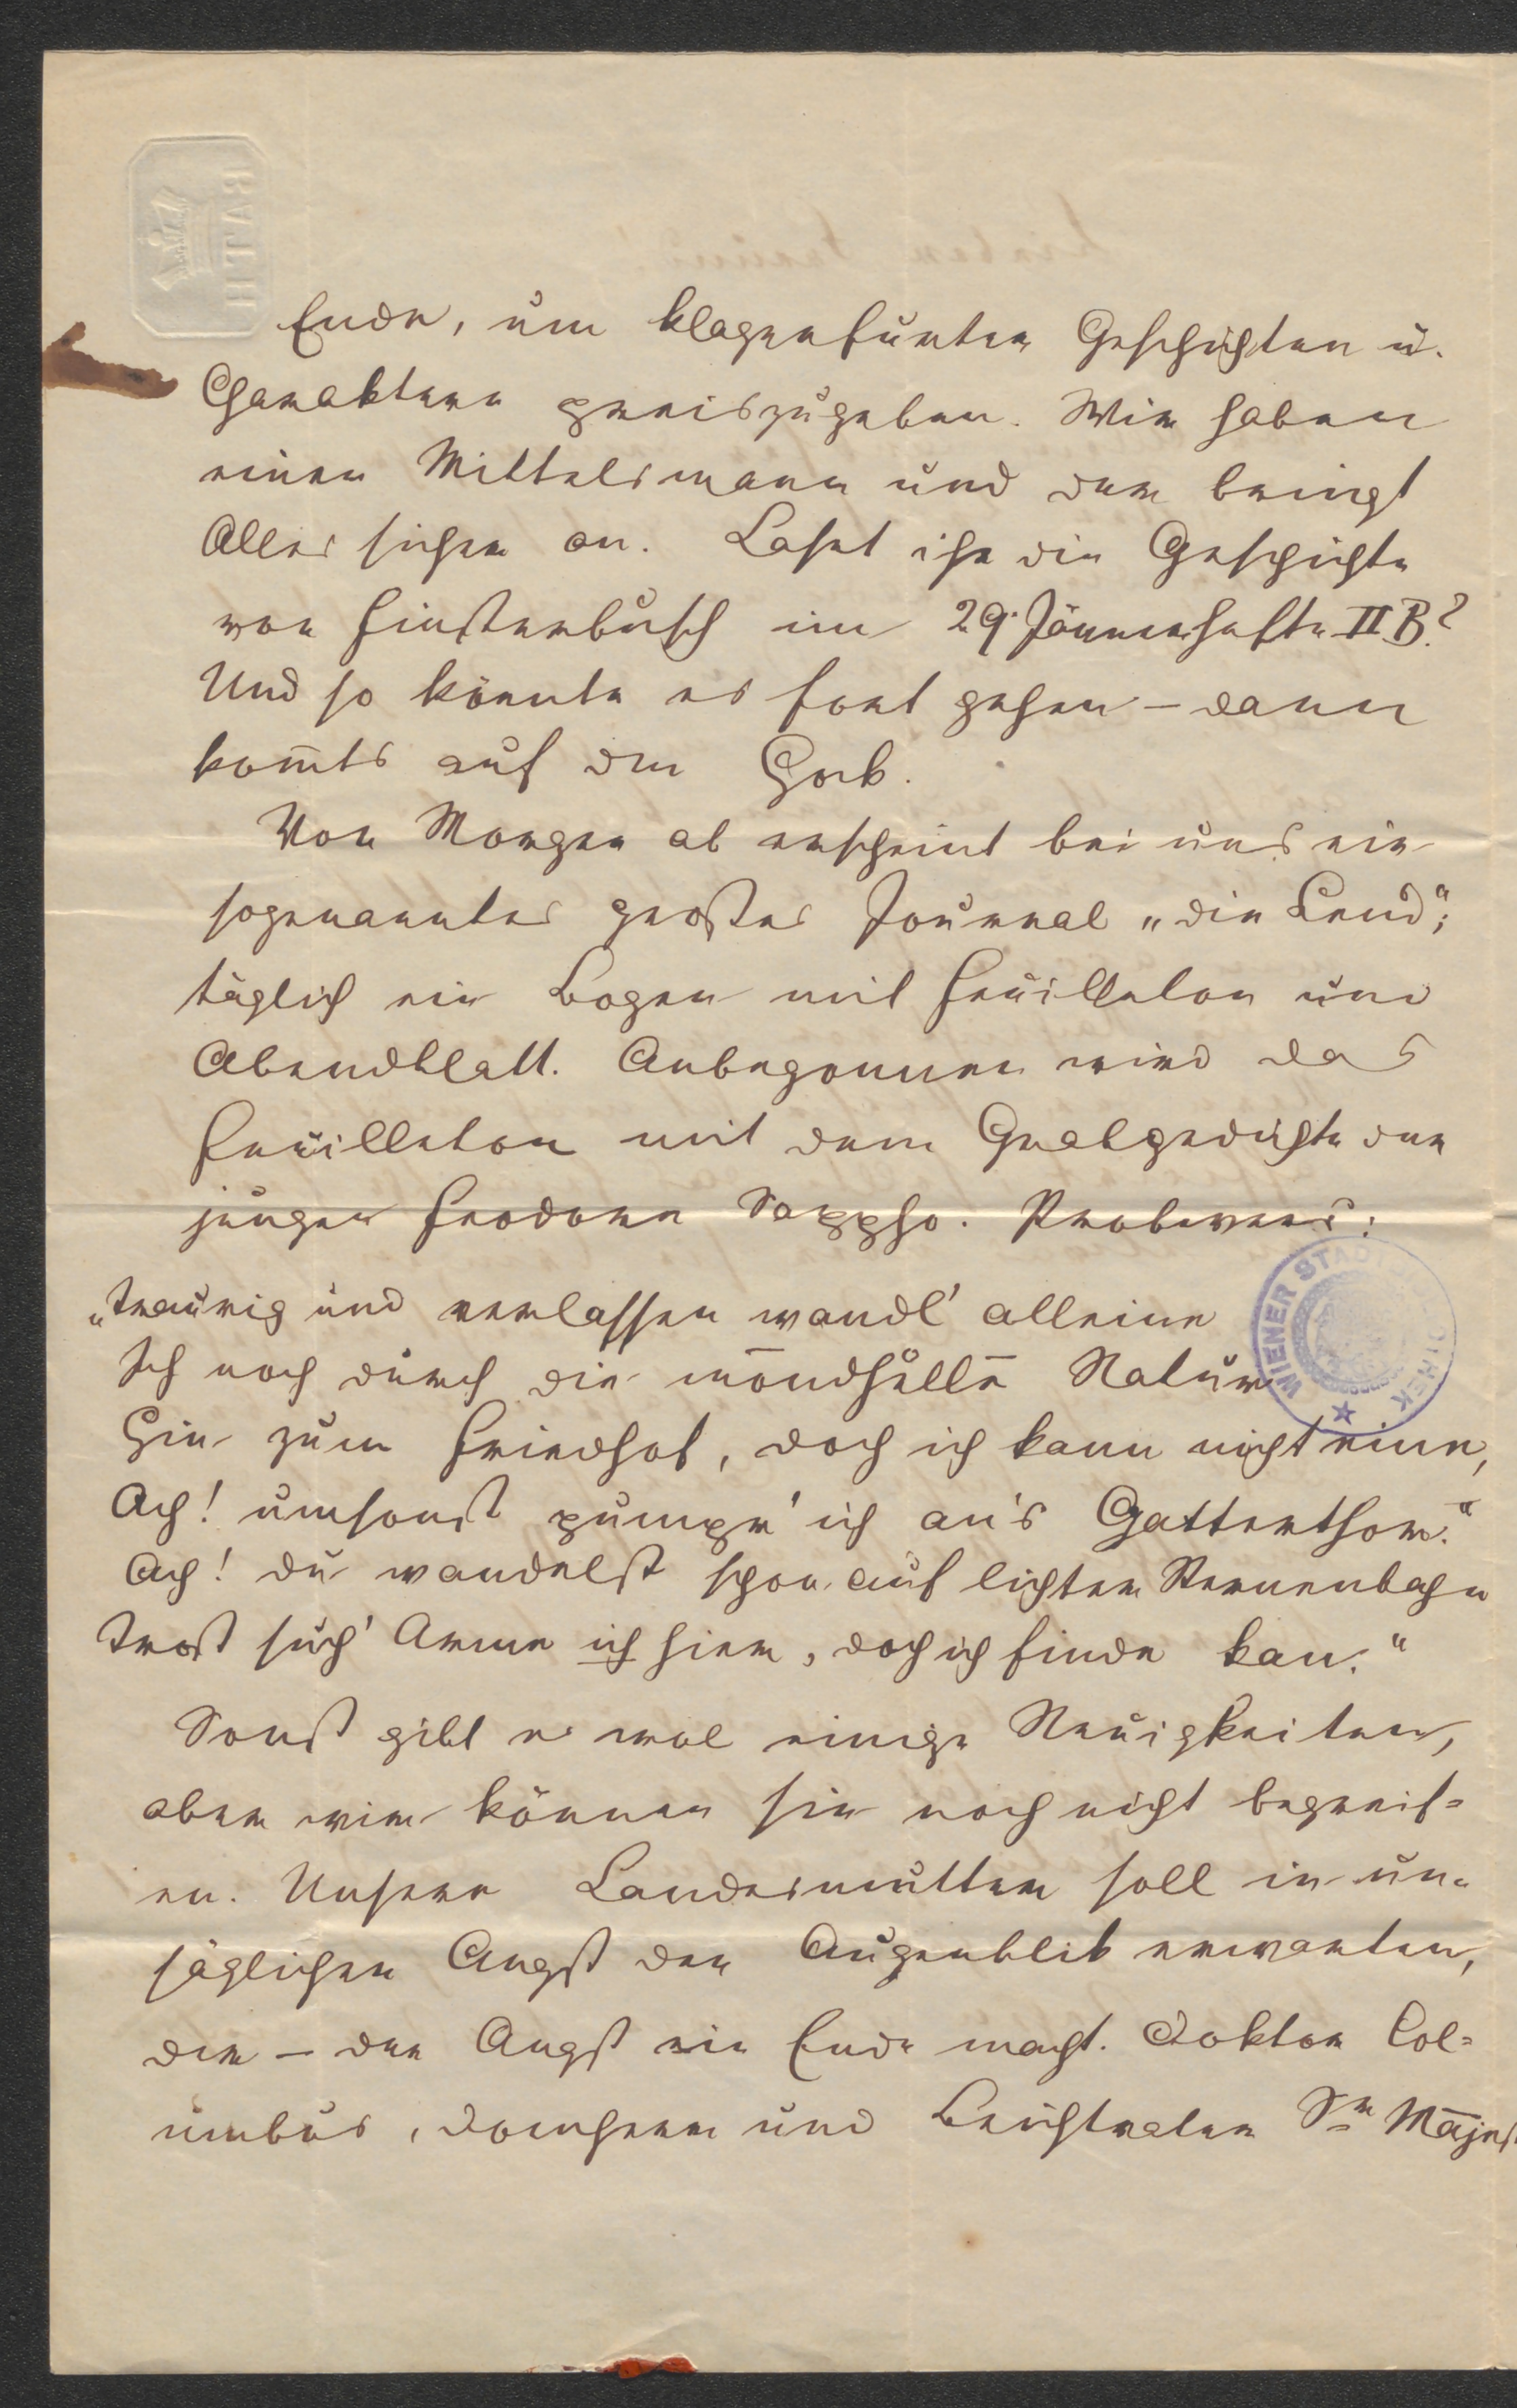 BATH
Ende, um klagenfurter Geschichten u.
Charaktere preiszugeben. Wir haben
einen Mittelsmann und der bringt
Alles sicher an. Laset ihr die Geschichte
von Finsterbusch im 29. Jännerhefte II B.?
Und so könnte es fort gehen – dann
kom̄ts auf den Hock.
Von Morgen ab erscheint bei uns ein
sogenanntes großes Journal „die Lend“;
täglich ein Bogen mit Feuilleton und
Abendblatt. Anbegonnen wird das
Feuilleton mit dem Grabgedichte der
jungen Feodore Sappho. Probevers:
„Traurig und verlassen wandl' alleine
Ich noch durch die mondhelle Natur
Hin zum Friedhof, doch ich kann nicht eine,
Ach! umsonst pumpr' ich an's Gatterthor.“
Ach! du wandelst schon auf lichter Sternenbahn
Trost such' Arme ich hier, doch ich finde kan.“
Sonst gibt es wol einige Neuigkeiten,
aber wir können sie noch nicht begreif=
en. Unsere Landesmutter soll in un=
säglicher Angst den Augenblik erwarten,
der – der Angst ein Ende macht. Doktor Col=
umbus, Domherr und Beichtvater Sr Majest
WIENER STADTBIBLIOTHEK